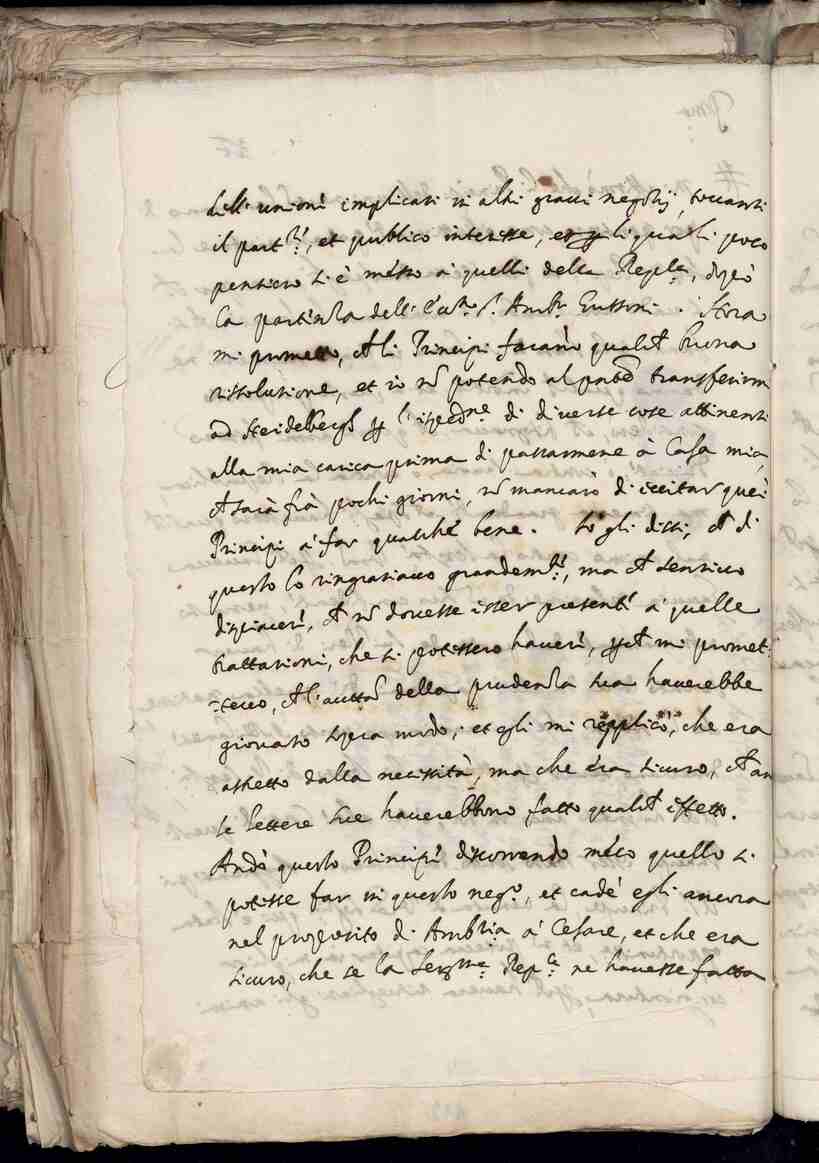 dell'unione implicati in altri gravi negotij, toccanti
il part.re, et publico interesse, li quali poco
pensiero si è messo à quelli della Repl.ca, doppò
la partenza dell' Ecc.mo S.r Amb.r Gussoni. Hora
mi prometto, ch li Principi faran̄o qualch buona
rissolutione, et io nō potendo al pnte transferirmi
ad Heidelbergh p l'ispedne di diverse cose attinenti
alla mia carica prima di passarmene à Casa mia,
ch sarà frà pochi giorni, nō mancarò di eccitar quei
Principi à far qualche bene. Io gli dissi, ch di
questo lo ringratiavo grandem.te, ma ch sentivo
dispiacere, ch nō dovesse esser presente à quelle
trattationi, che si potessero havere, pch mi promet
tevo, ch l'autto della prudenza sua haverebbe
giovato sopra modo; et egli mi replicò, che era
astretto dalla necissità, ma che era sicuro, ch an
le lettere sue haverebbono fatto qualch effetto.
Andò questo Principe discorrendo meco quello si
potesse far in questo neg.o, et cadè egli ancora
nel proposito di Ambria à Cesare, et che era
sicuro, che se la Ser.ma Rep.ca ne havesse fatta